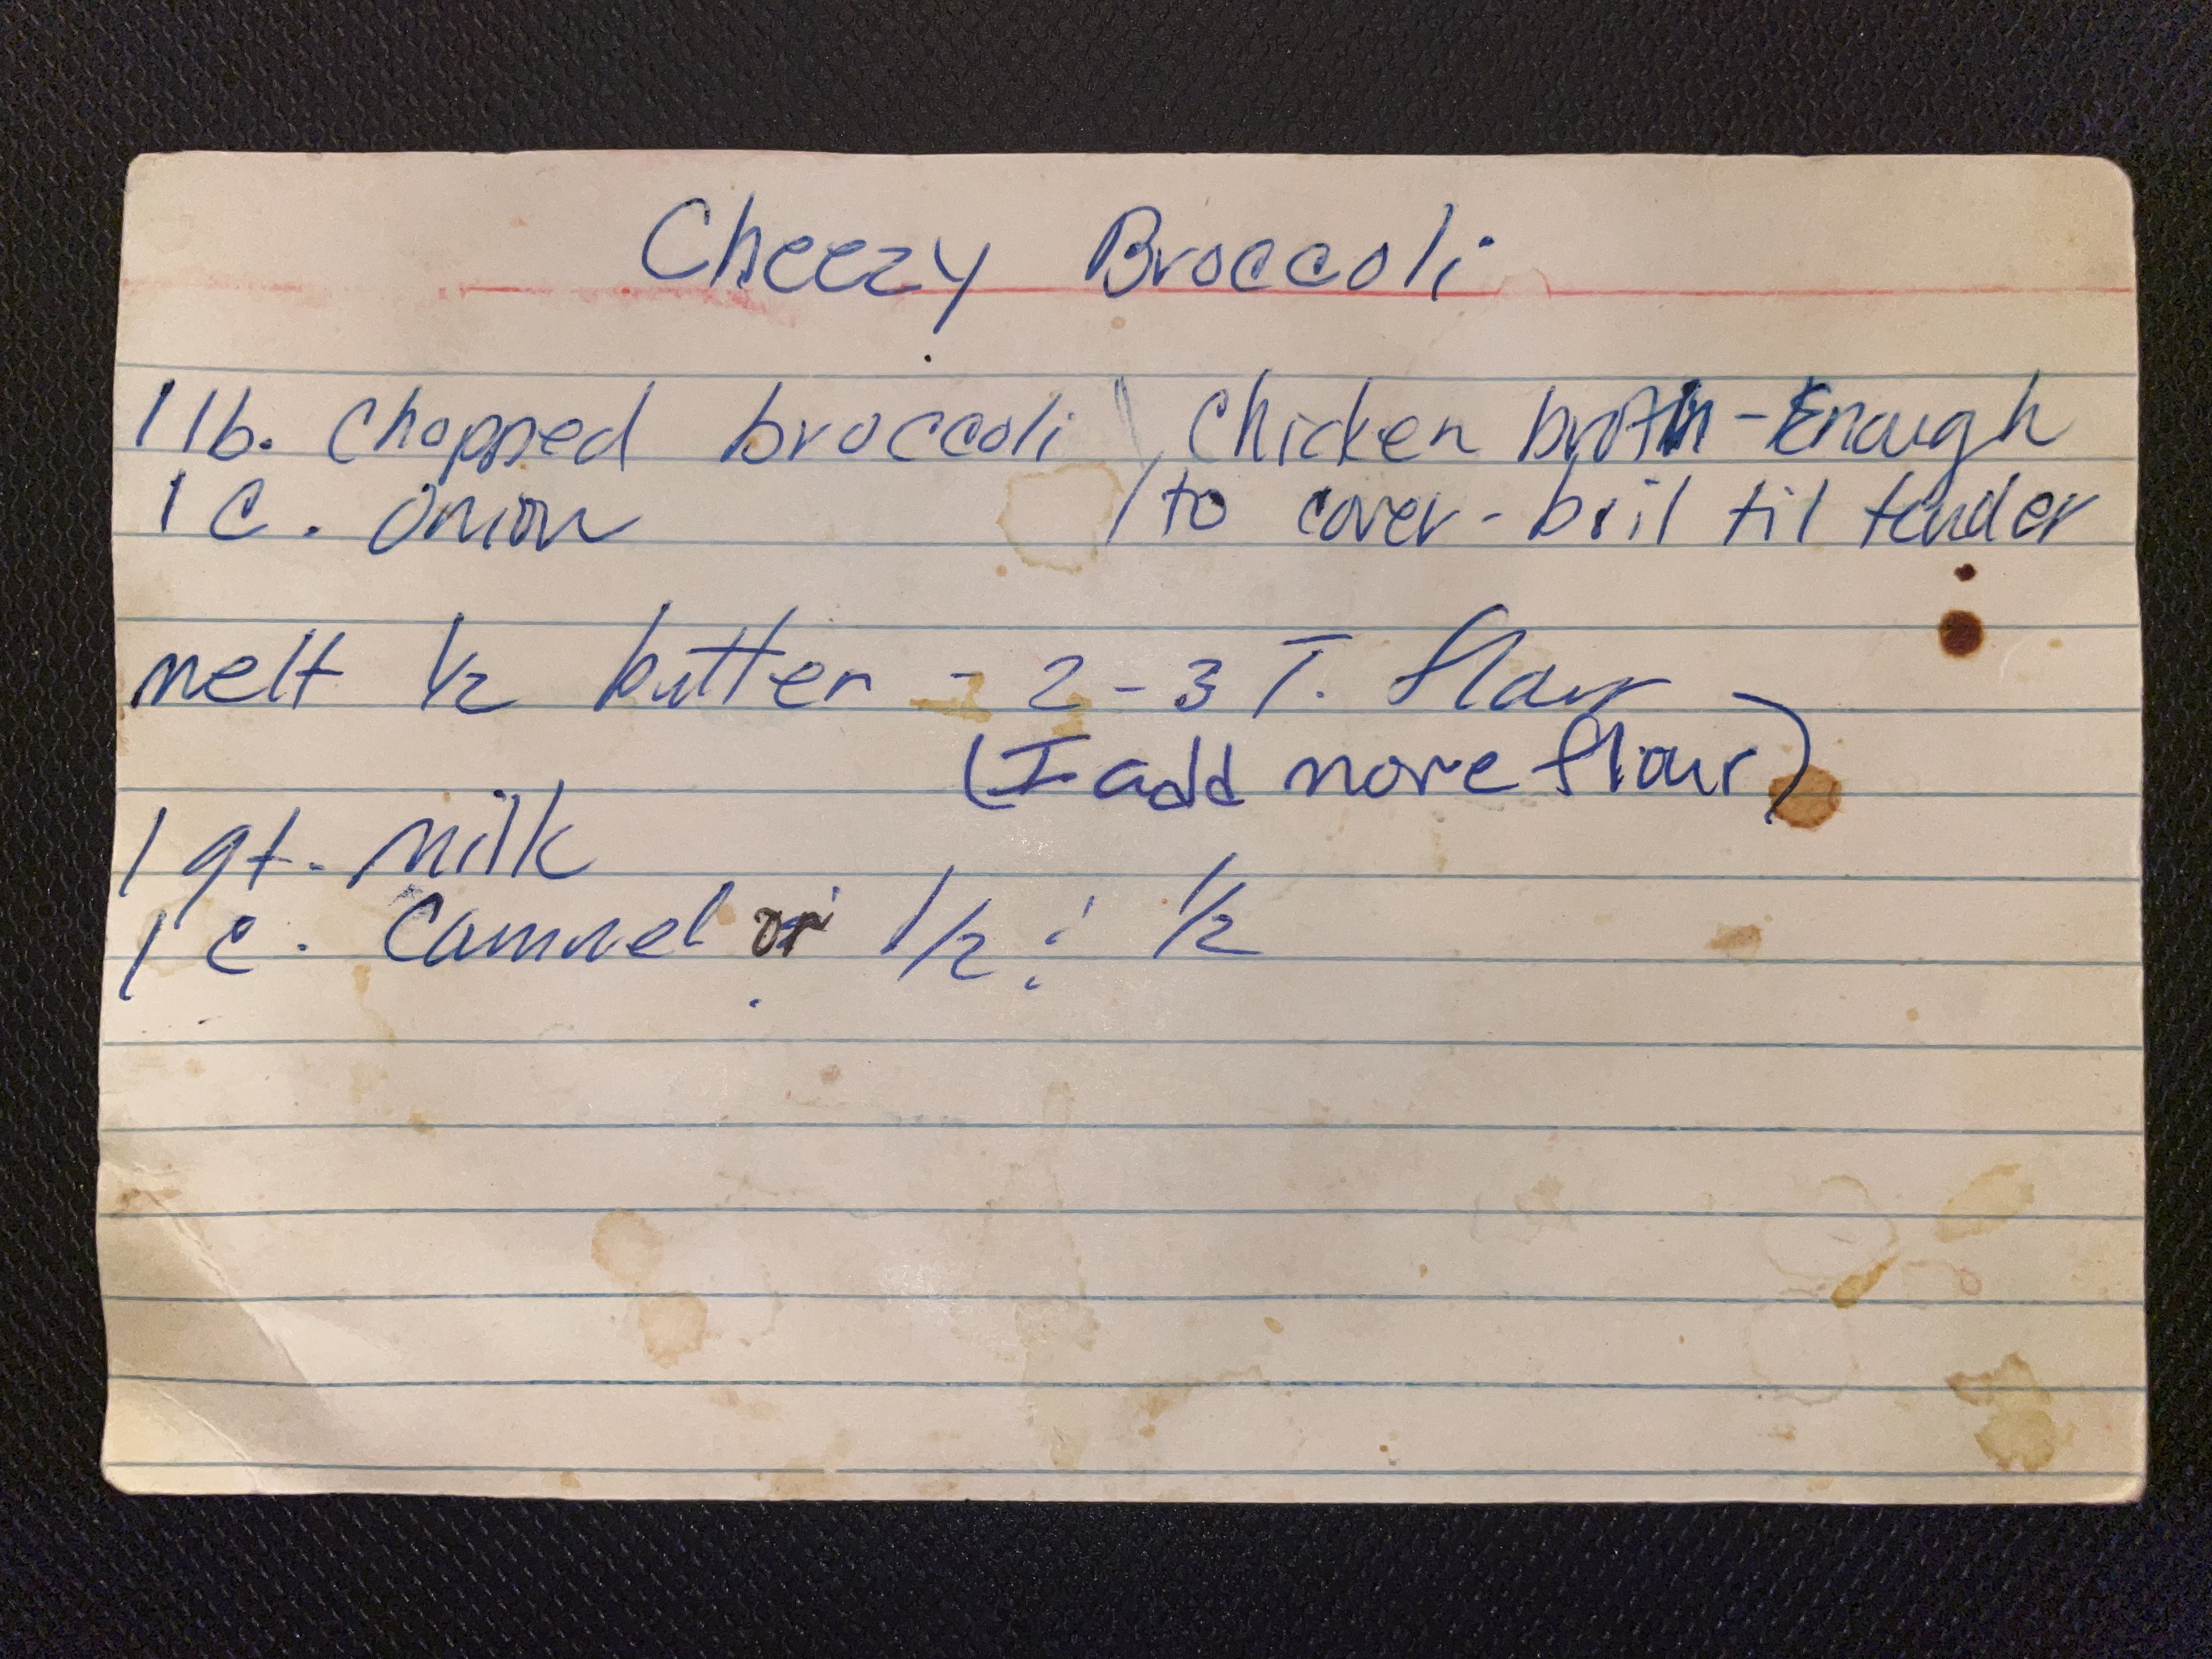 Cheezy Broccoli
1 lb. Chopped broccoli / Chicken broth - Enough
1 C. Onion / to cover - boil til tender
melt 1/2 butter - 2 - 3 T. flour
(I add more flour)
1 qt. Milk
1 c. Canned or 1/2 & 1/2